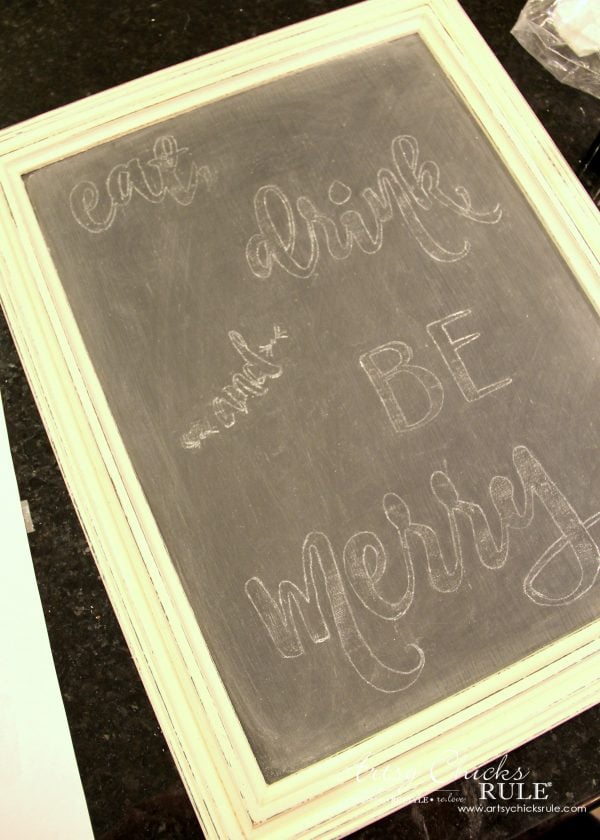 eat,
drink
and
BE
merry
Artsy Chicks
RULE
www.artsychicksrule.com